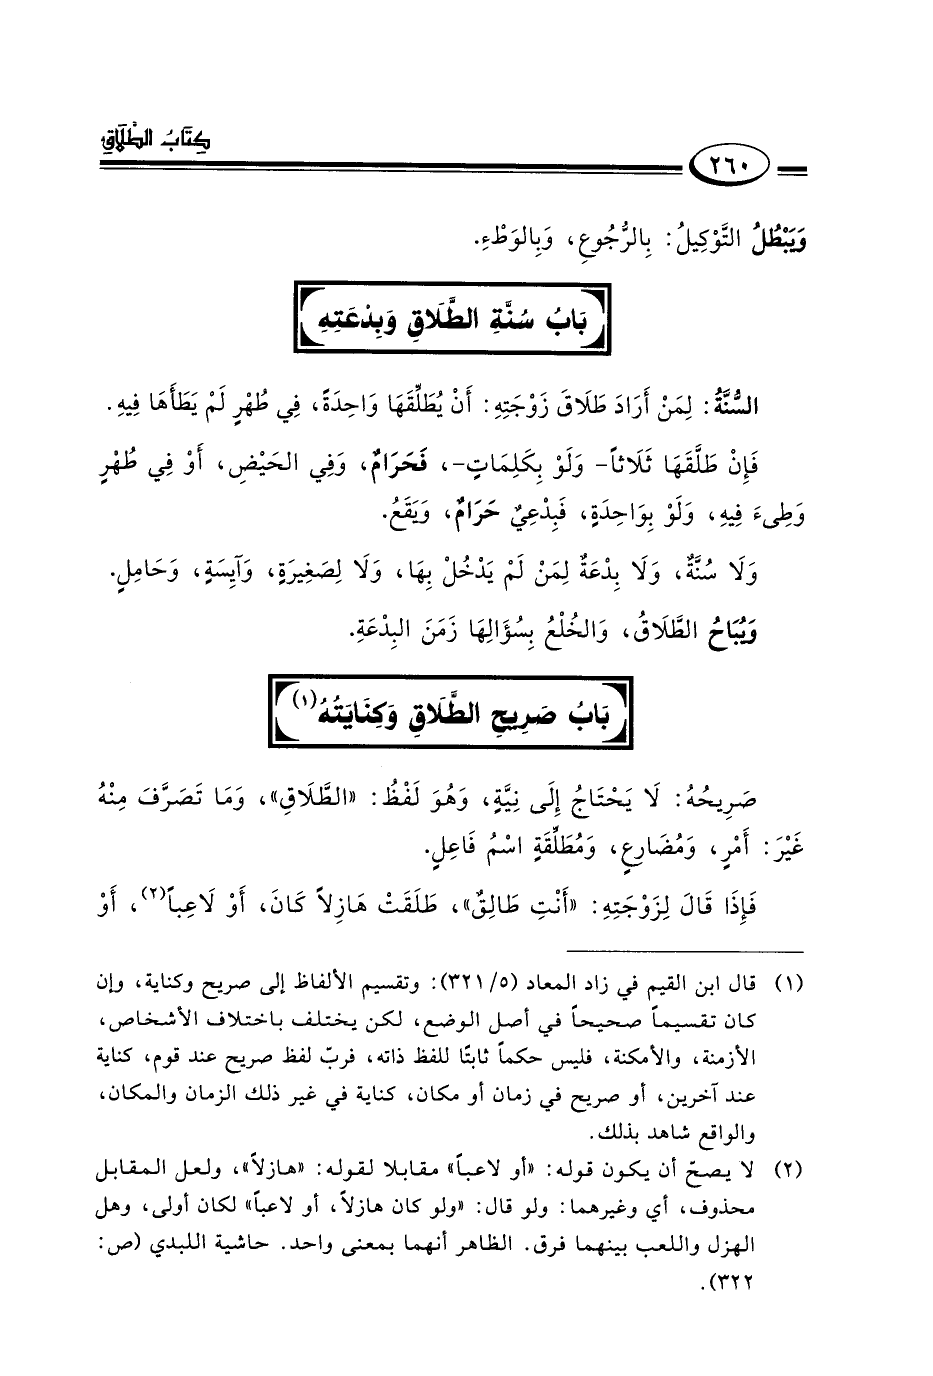 كِتَابُ الطَّلَاقِ
٢٦٠
وَيَبْطُلُ التَّوْكِيلُ: بِالرُّجُوعِ، وَبِالوَطْءِ.
بَابُ سُنَّةِ الطَّلَاقِ وَبِدْعَتِهِ
السُّنَّةُ: لِمَنْ أَرَادَ طَلَاقَ زَوْجَتِهِ: أَنْ يُطَلِّقَهَا وَاحِدَةً، فِي طُهْرٍ لَمْ يَطَأْهَا فِيهِ.
فَإِنْ طَلَّقَهَا ثَلَاثاً- وَلَوْ بِكَلِمَاتٍ-، فَحَرَامٌ، وَفِي الحَيْضِ، أَوْ فِي طُهْرٍ
وَطِىءَ فِيهِ، وَلَوْ بِوَاحِدَةٍ، فَبِدْعِيٌ حَرَامٌ، وَيَقَعُ.
وَلَا سُنَّةٌ، وَلَا بِدْعَةٌ لِمَنْ لَمْ يَدْخُلْ بِهَا، وَلَا لِصَغِيرَةٍ، وَآيِسَةٍ، وَحَامِلٍ.
وَيُبَاحُ الطَّلَاقُ، وَالخُلْعُ بِسُؤَالِهَا زَمَنَ البِدْعَةِ.
بَابُ صَرِيحِ الطَّلَاقِ وَكِنَايَتُهُ(١)
صَرِيحُهُ: لَا يَحْتَاجُ إِلَى نِيَّةٍ، وَهُوَ لَفْظُ: «الطَّلَاقِ»، وَمَا تَصَرَّفَ مِنْهُ
غَيْرَ: أَمْرٍ، وَمُضَارِعٍ، وَمُطَلِّقَةٍ اسْمُ فَاعِلٍ.
فَإِذَا قَالَ لِزَوْجَتِهِ: «أَنْتِ طَالِقٌ»، طَلَقَتْ هَازِلاً كَانَ، أَوْ لَاعِباً(٢)، أَوْ
(١) قال ابن القيم في زاد المعاد (٥/ ٣٢١): وتقسيم الألفاظ إلى صريح وكناية، وإن
كان تقسيماً صحيحاً في أصل الوضع، لكن يختلف باختلاف الأشخاص،
الأزمنة، والأمكنة، فليس حكماً ثابتًا للفظ ذاته، فربّ لفظ صريح عند قوم، كناية
عند آخرين، أو صريح في زمان أو مكان، كناية في غير ذلك الزمان والمكان،
والواقع شاهد بذلك.
(٢) لا يصحّ أن يكون قوله: «أو لاعباً» مقابلا لقوله: «هازلاً»، ولعل المقابل
محذوف، أي وغيرهما: ولو قال: «ولو كان هازلاً، أو لاعباً» لكان أولى، وهل
الهزل واللعب بينهما فرق. الظاهر أنهما بمعنى واحد. حاشية اللبدي (ص:
٣٢٢).